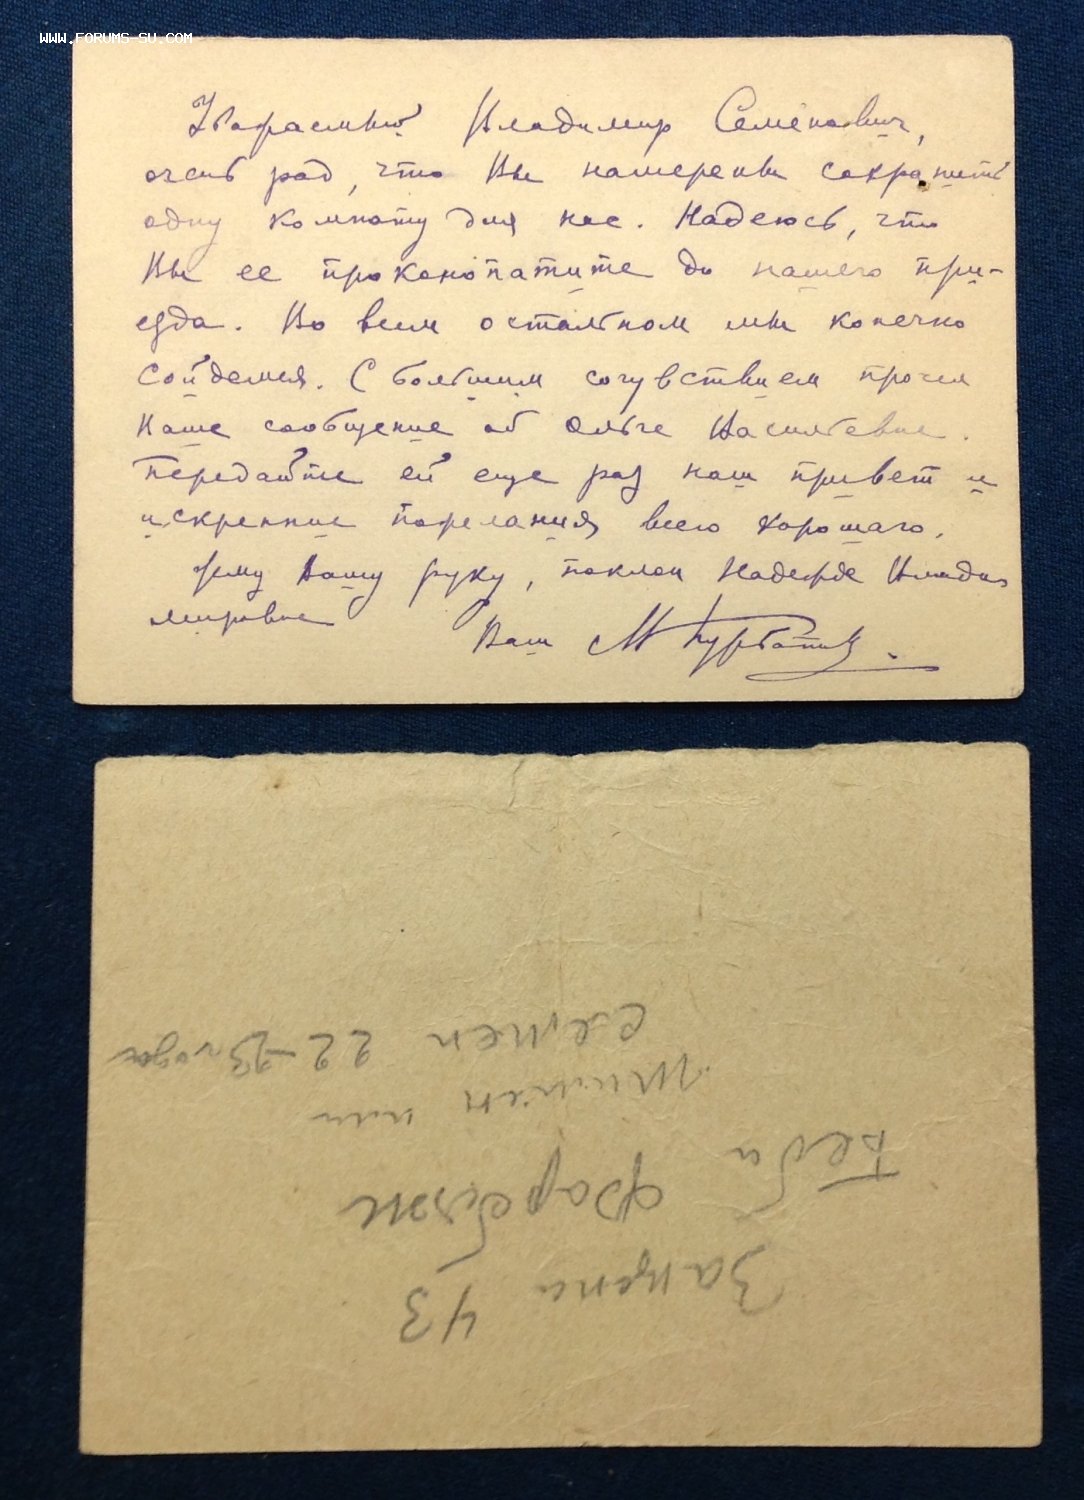 WWW.FORUMS-SU.COM
Уважаемый Владимир Семёнович,
очень рад, что Вы намерены сохранить
одну комнату для нас. Надеюсь, что
Вы ее проконопатите до нашего при-
езда. Во всем остальном мы конечно
сойдемся. С большим сочувствием прочел
Ваше сообщение об Ольге Васильевне.
Передайте ей еще раз наш привет и
искренние пожелания всего хорошаго.
Жму Вашу руку, поклон Надежде Влади
мировне
Ваш М Курбатов.
Зацепа 43
Фарбяж
Беба
или
Семен 22-23 года